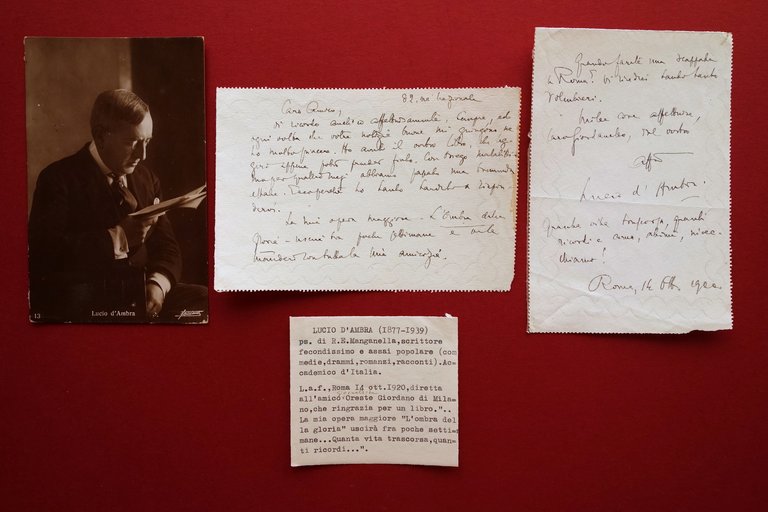 13 Lucio d'Ambra
82. Via Nazionale
Caro Amico,
vi ricordo anch'io affettuosamente, sempre, ed
ogni volta che vostre notizie buone mi giungono ne
ho molto piacere. Ho avuto il vostro libro, che
appena potrò
per quattro mesi abbiamo
estate. Ecco perchè ho tanto tardato a rispon
dervi.
La mia opera maggiore - L'Ombra della
Gloria - uscirà fra poche settimane e ve la
manderò con tutta la mia amicizia.
Quando farete una scappata
a Roma? Vi rivedrei tanto tanto
volentieri.
Mille cose affettuose,
caro Giordano, dal vostro
affº
Lucio d'Ambra.
Quanta vita trascorsa, quanti
ricordi e come, ahimè, invec-
chiamo!
Roma, 14 Ott. 1920
LUCIO D'AMBRA (I877-I939)
ps. di R.E.Manganella,scrittore
fecondissimo e assai popolare (com
medie,drammi,romanzi,racconti).Ac=
cademico d'Italia.
L.a.f.,Roma I4 ott.I920,diretta
giornalista
all'amico Oreste Giordano di Mila=
no,che ringrazia per un libro."..
La mia opera maggiore "L'ombra del
la gloria" uscirà fra poche setti=
mane...Quanta vita trascorsa,quan=
ti ricordi...".